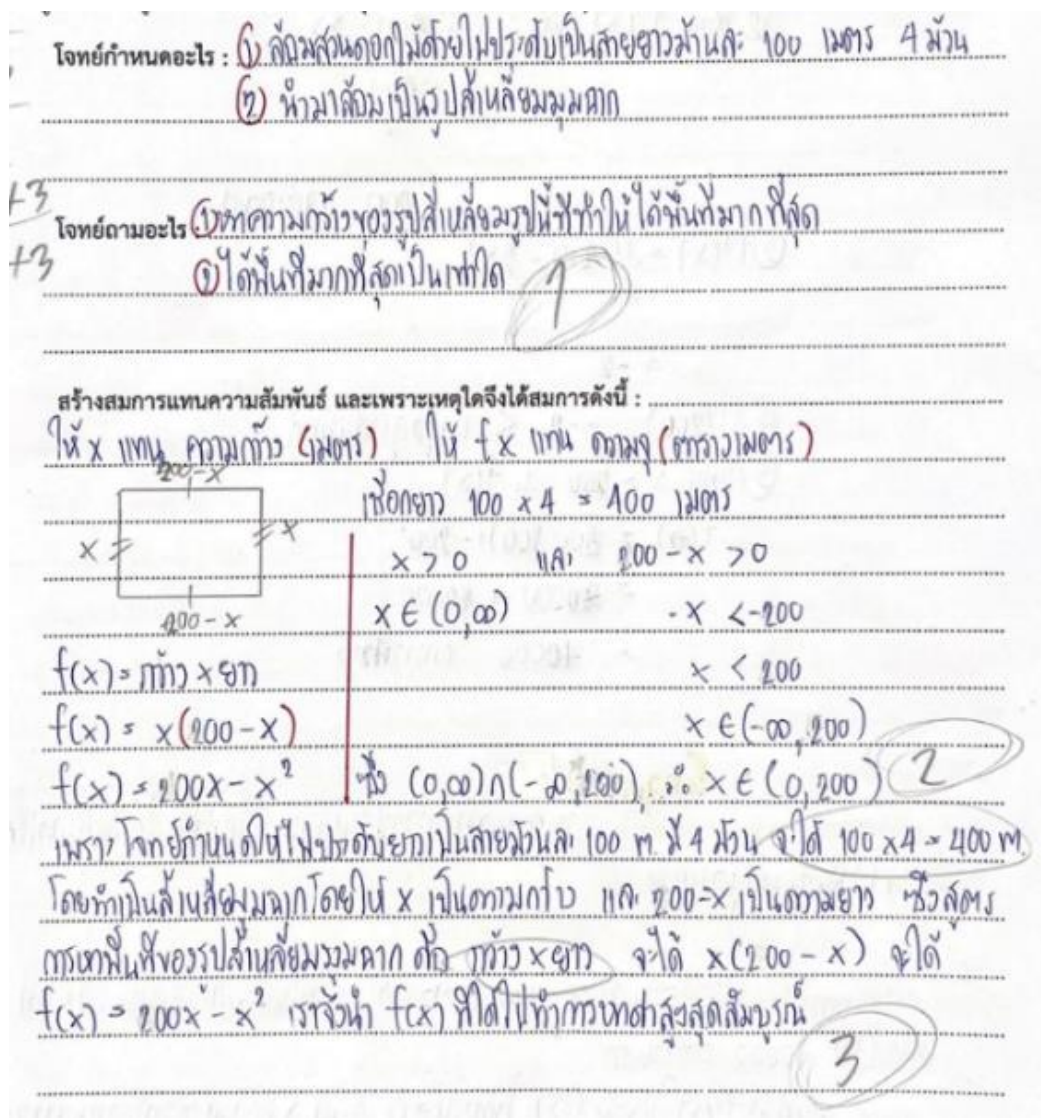 โจทย์กำหนดอะไร : ① ล้อมสวนดอกไม้ด้วยไฟประดับเป็นสายยาวม้วนละ 100 เมตร 4 ม้วน
② นำมาล้อมเป็นรูปสี่เหลี่ยมมุมฉาก
+3
โจทย์ถามอะไร ① หาความกว้างของรูปสี่เหลี่ยมรูปนี้ที่ทำให้ได้พื้นที่มากที่สุด
+3
② ได้พื้นที่มากที่สุดเป็นเท่าใด
1
สร้างสมการแทนความสัมพันธ์ และเพราะเหตุใดจึงได้สมการดังนี้ :
ให้ x แทน ความกว้าง (เมตร) ให้ f x แทน ความจุ (ตารางเมตร)
200-x
เชือกยาว 100 x 4 = 400 เมตร
x x
x > 0 และ 200 - x > 0
200 - x
x ∈ (0,∞) -x < -200
f(x) = กว้าง x ยาว x < 200
f(x) = x(200-x) x ∈ (-∞, 200)
f(x) = 200x - x² ซึ่ง (0,∞)∩(-∞,200) ∴ x ∈ (0,200) 2
เพราะ โจทย์กำหนดให้ไฟประดับยาวเป็นสายม้วนละ 100 m. มี 4 ม้วน จะได้ 100 x4 = 400 m
โดยทำเป็นสี่เหลี่ยมมุมฉากโดยให้ x เป็นความกว้าง และ 200-x เป็นความยาว ซึ่งสูตร
การหาพื้นที่ของรูปสี่เหลี่ยมมุมฉาก คือ กว้าง x ยาว จะได้ x(200 - x) จะได้
f(x) = 200x - x² เราจึงนำ f(x) ที่ได้ไปทำการหาค่าสูงสุดสัมบูรณ์
3